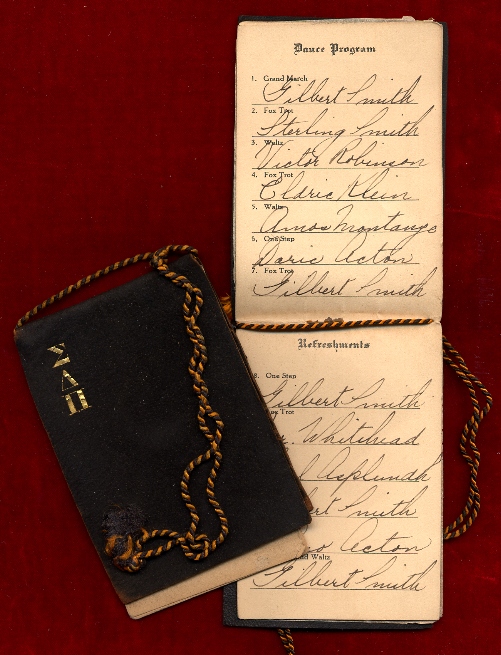 Dance Program
1. Grand March
Gilbert Smith
2. Fox Trot
Sterling Smith
3. Waltz
Victor Robinson
4. Fox Trot
Eldric Klein
5. Waltz
Amos Montange
6. One Step
Daric Acton
7. Fox Trot
Gilbert Smith
Refreshments
8. One Step
Gilbert Smith
Fox Trot
Whitehead
Asplundh
Smith
Acton
Waltz
Gilbert Smith
Σ
Δ
Π